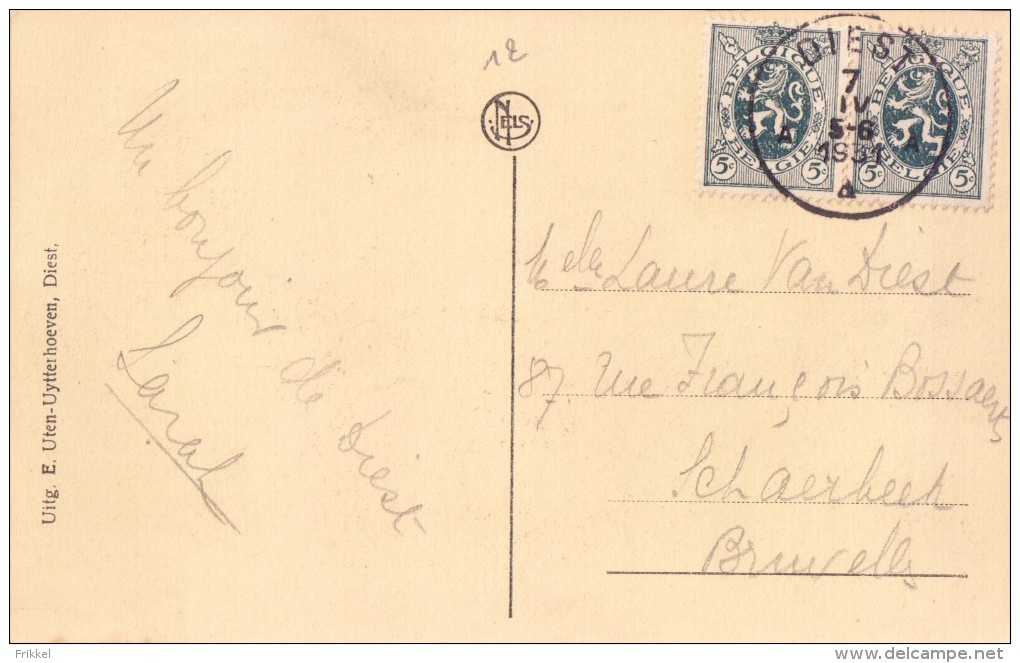 12
NELS
Un bonjour de Diest
Sarah
Uitg. E. Uten-Uytterhoeven, Diest.
BELGIQUE
BELGIE
5c 5c
BELGIQUE
BELGIE
5c 5c
DIEST
7
IV
A 5-6 A
1931
A
Melle Laure Van Diest
87 rue François Bossaerts
Schaerbeek
Bruxelles
Frikkel
delcampe.net